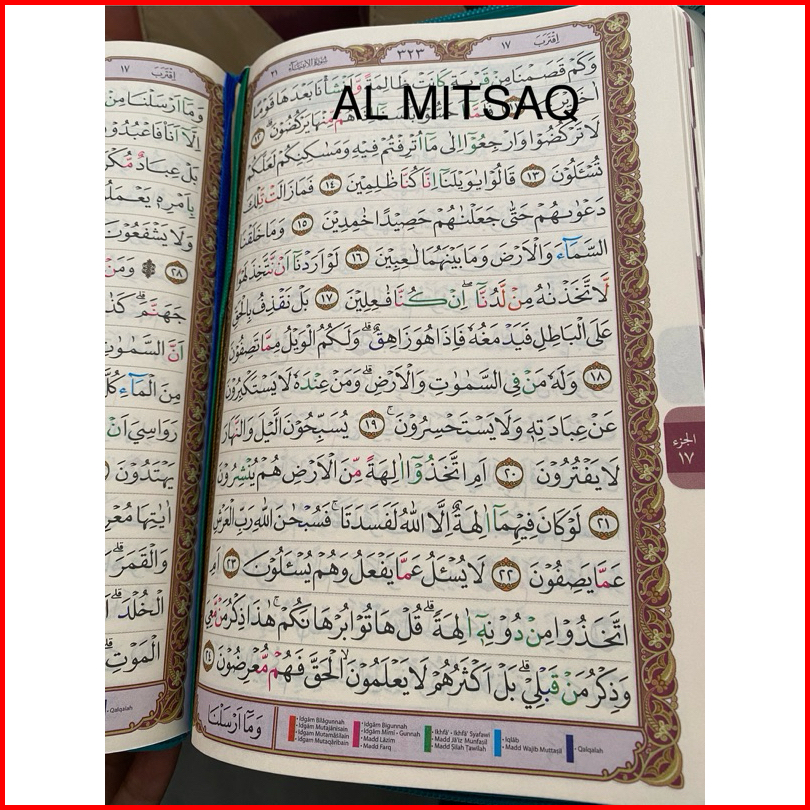 اِقْتَرَبَ ١٧
٣٢٣
سُوْرَةُ الْاَنْبِيَاۤءِ ٢١
AL MITSAQ
وَكَمْ قَصَمْنَا مِنْ قَرْيَةٍ كَانَتْ ظَالِمَةً وَّاَنْشَأْنَا بَعْدَهَا قَوْمًا
اٰخَرِيْنَ مِّنْهَا يَرْكُضُوْنَ ۗ ١٢
لَا تَرْكُضُوْا وَارْجِعُوْٓا اِلٰى مَآ اُتْرِفْتُمْ فِيْهِ وَمَسٰكِنِكُمْ لَعَلَّكُمْ
تُسْـَٔلُوْنَ ١٣ قَالُوْا يٰوَيْلَنَآ اِنَّا كُنَّا ظٰلِمِيْنَ ١٤ فَمَا زَالَتْ تِّلْكَ
دَعْوٰىهُمْ حَتّٰى جَعَلْنٰهُمْ حَصِيْدًا خٰمِدِيْنَ ١٥ وَمَا خَلَقْنَا
السَّمَاۤءَ وَالْاَرْضَ وَمَا بَيْنَهُمَا لٰعِبِيْنَ ١٦ لَوْ اَرَدْنَآ اَنْ نَّتَّخِذَ لَهْوًا
لَّاتَّخَذْنٰهُ مِنْ لَّدُنَّآ ۖ اِنْ كُنَّا فٰعِلِيْنَ ١٧ بَلْ نَقْذِفُ بِالْحَقِّ
عَلَى الْبَاطِلِ فَيَدْمَغُهٗ فَاِذَا هُوَ زَاهِقٌ ۗ وَلَكُمُ الْوَيْلُ مِمَّا تَصِفُوْنَ
١٨ وَلَهٗ مَنْ فِى السَّمٰوٰتِ وَالْاَرْضِ ۗ وَمَنْ عِنْدَهٗ لَا يَسْتَكْبِرُوْنَ
عَنْ عِبَادَتِهٖ وَلَا يَسْتَحْسِرُوْنَ ۚ ١٩ يُسَبِّحُوْنَ الَّيْلَ وَالنَّهَارَ
لَا يَفْتُرُوْنَ ٢٠ اَمِ اتَّخَذُوْٓا اٰلِهَةً مِّنَ الْاَرْضِ هُمْ يُنْشِرُوْنَ
٢١ لَوْ كَانَ فِيْهِمَآ اٰلِهَةٌ اِلَّا اللّٰهُ لَفَسَدَتَا ۚ فَسُبْحٰنَ اللّٰهِ رَبِّ الْعَرْشِ
عَمَّا يَصِفُوْنَ ٢٢ لَا يُسْـَٔلُ عَمَّا يَفْعَلُ وَهُمْ يُسْـَٔلُوْنَ ٢٣ اَمِ
اتَّخَذُوْا مِنْ دُوْنِهٖٓ اٰلِهَةً ۗ قُلْ هَاتُوْا بُرْهَانَكُمْ ۚ هٰذَا ذِكْرُ مَنْ مَّعِيَ
وَذِكْرُ مَنْ قَبْلِيْ ۗ بَلْ اَكْثَرُهُمْ لَا يَعْلَمُوْنَ ۙ الْحَقَّ فَهُمْ مُّعْرِضُوْنَ ٢٤
وَمَآ اَرْسَلْنَا
الجزء
١٧
• Idgam Bilagunnah
• Idgam Mutajanisain
• Idgam Mutamasilain
• Idgam Mutaqaribain
• Idgam Bigunnah
• Idgam Mimi - Gunnah
• Madd Lazim
• Madd Farq
• Ikhfa' - Ikhfa' Syafawi
• Madd Ja'iz Munfasil
• Madd Silah Tawilah
• Iqlab
• Madd Wajib Muttasil
• Qalqalah
اِقْتَرَبَ ١٧
وَمَآ اَرْسَلْنَا مِنْ
اِلَّآ اَنَا۠ فَاعْبُدُوْنِ
بَلْ عِبَادٌ مُّكْرَ
بِاَمْرِهٖ يَعْمَلُ
وَلَا يَشْفَعُوْنَ
٢٨ وَمَنْ
جَهَنَّمَ ۗ كَذٰ
اَنَّ السَّمٰوٰتِ
مِنَ الْمَاۤءِ كُلَّ
رَوَاسِيَ اَنْ
يَهْتَدُوْنَ
اٰيٰتِهَا مُعْرِ
وَالْقَمَرَ ۗ
الْخُلْدَ ۗ
الْمَوْتِ ۗ
• Qalqalah